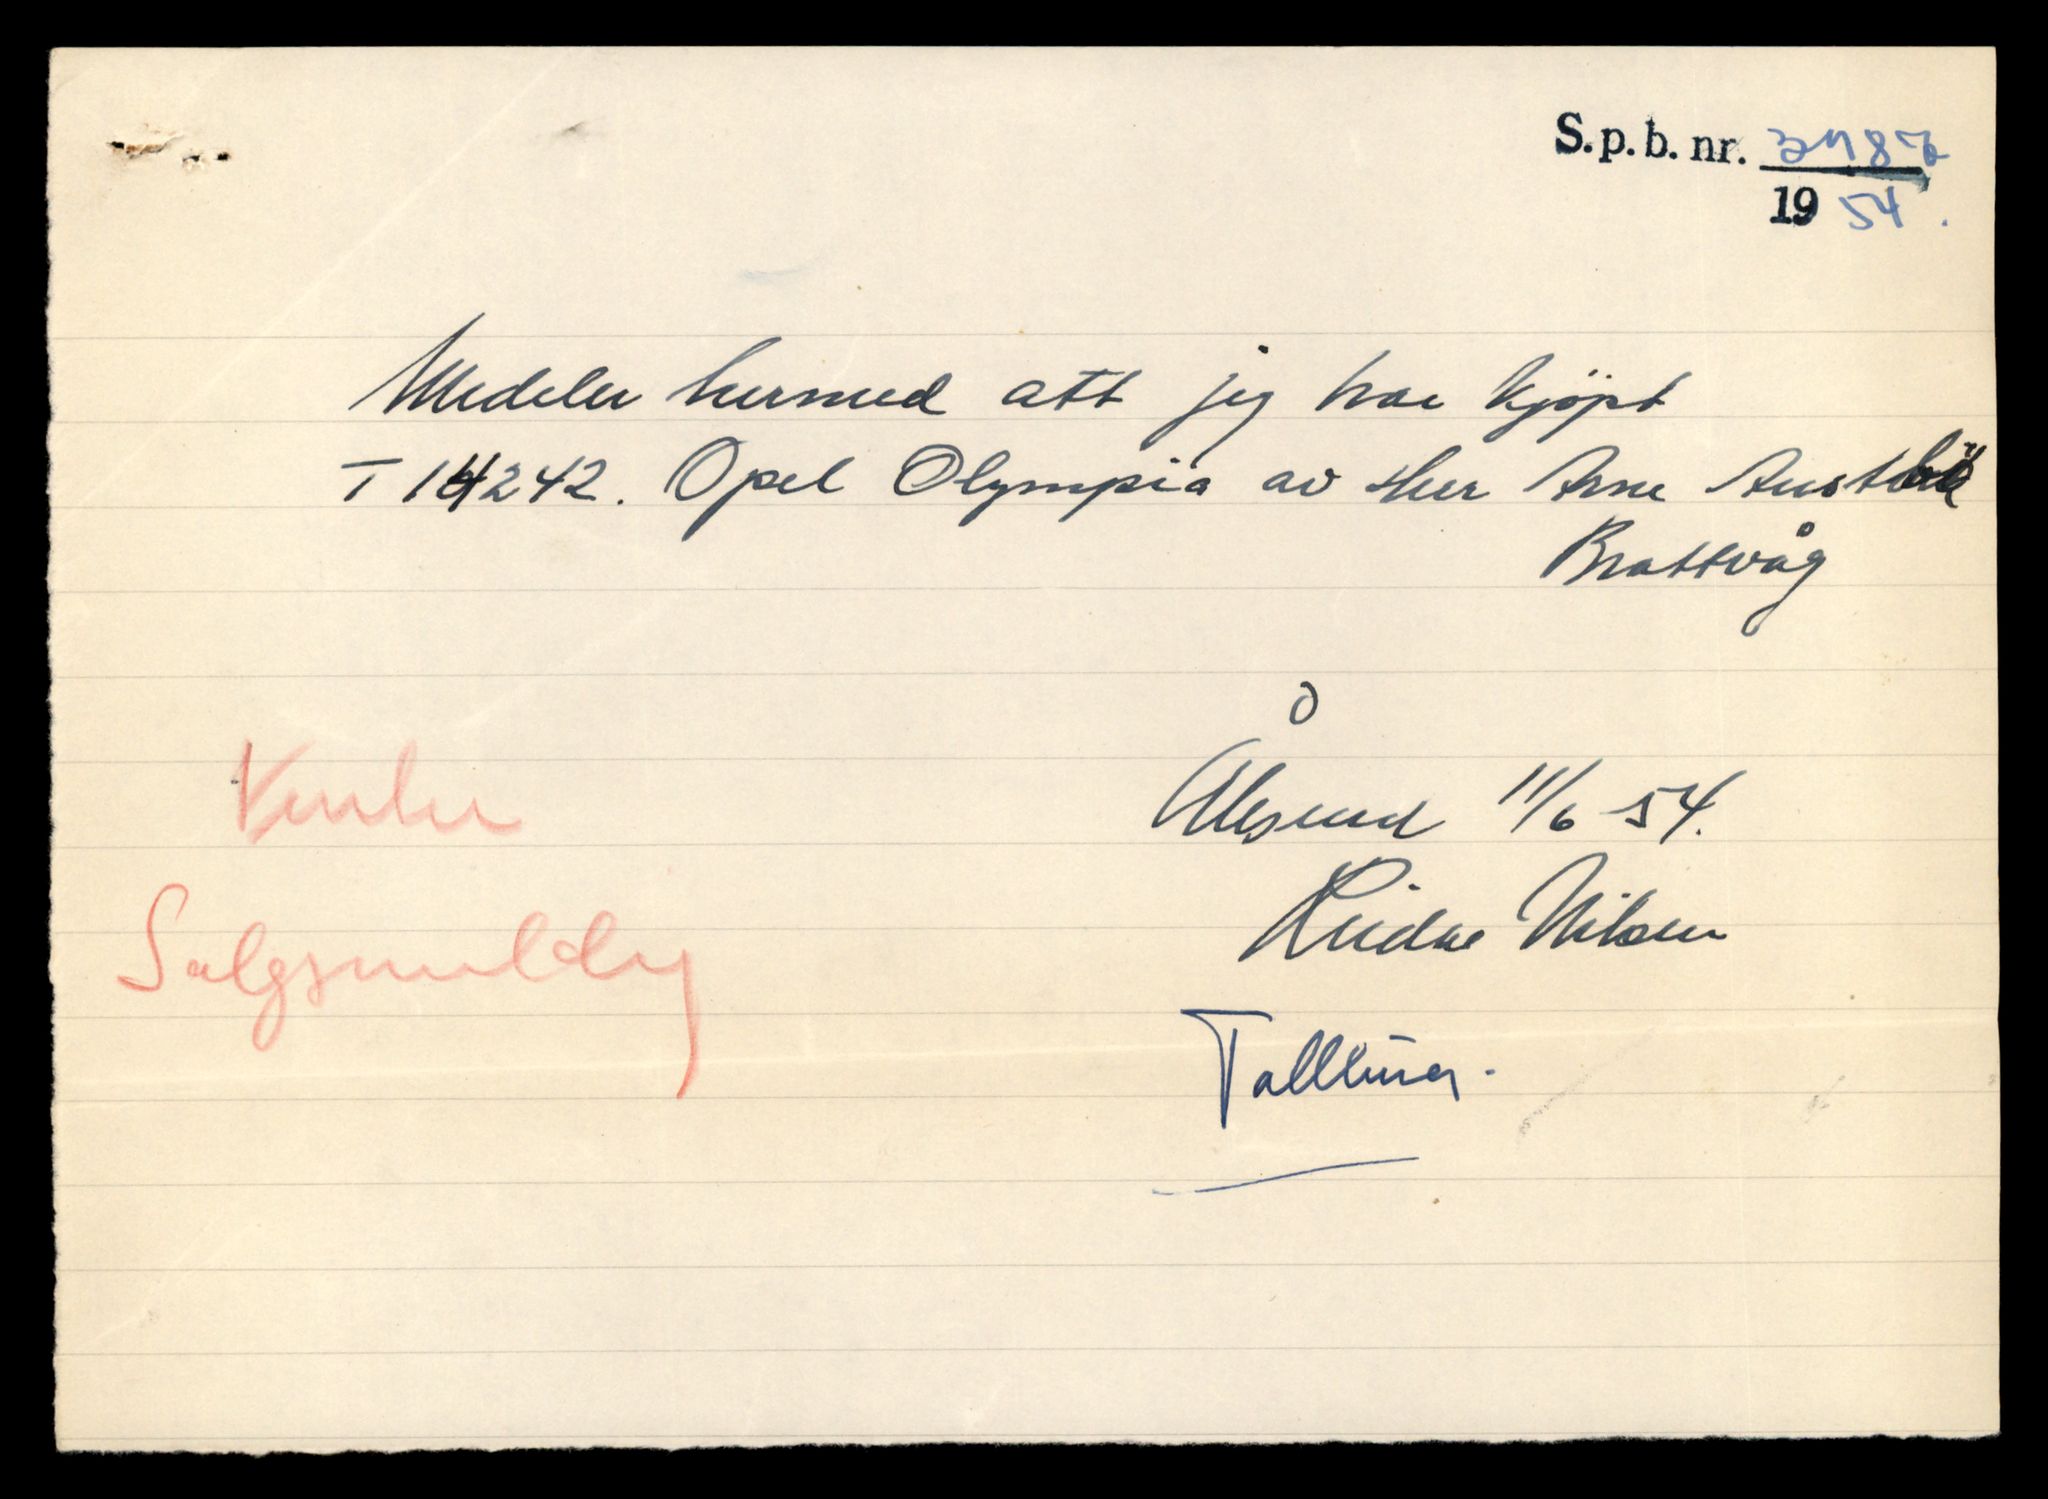 S.p.b. nr. 3487
1954.
Medeler hermed att jig har kjöpt
T 14242. Opel Olympia av Herr Arne
Brattvåg
Ålesund 11/6 54.
Reidar Nilsen
Venter
Salgsmelding